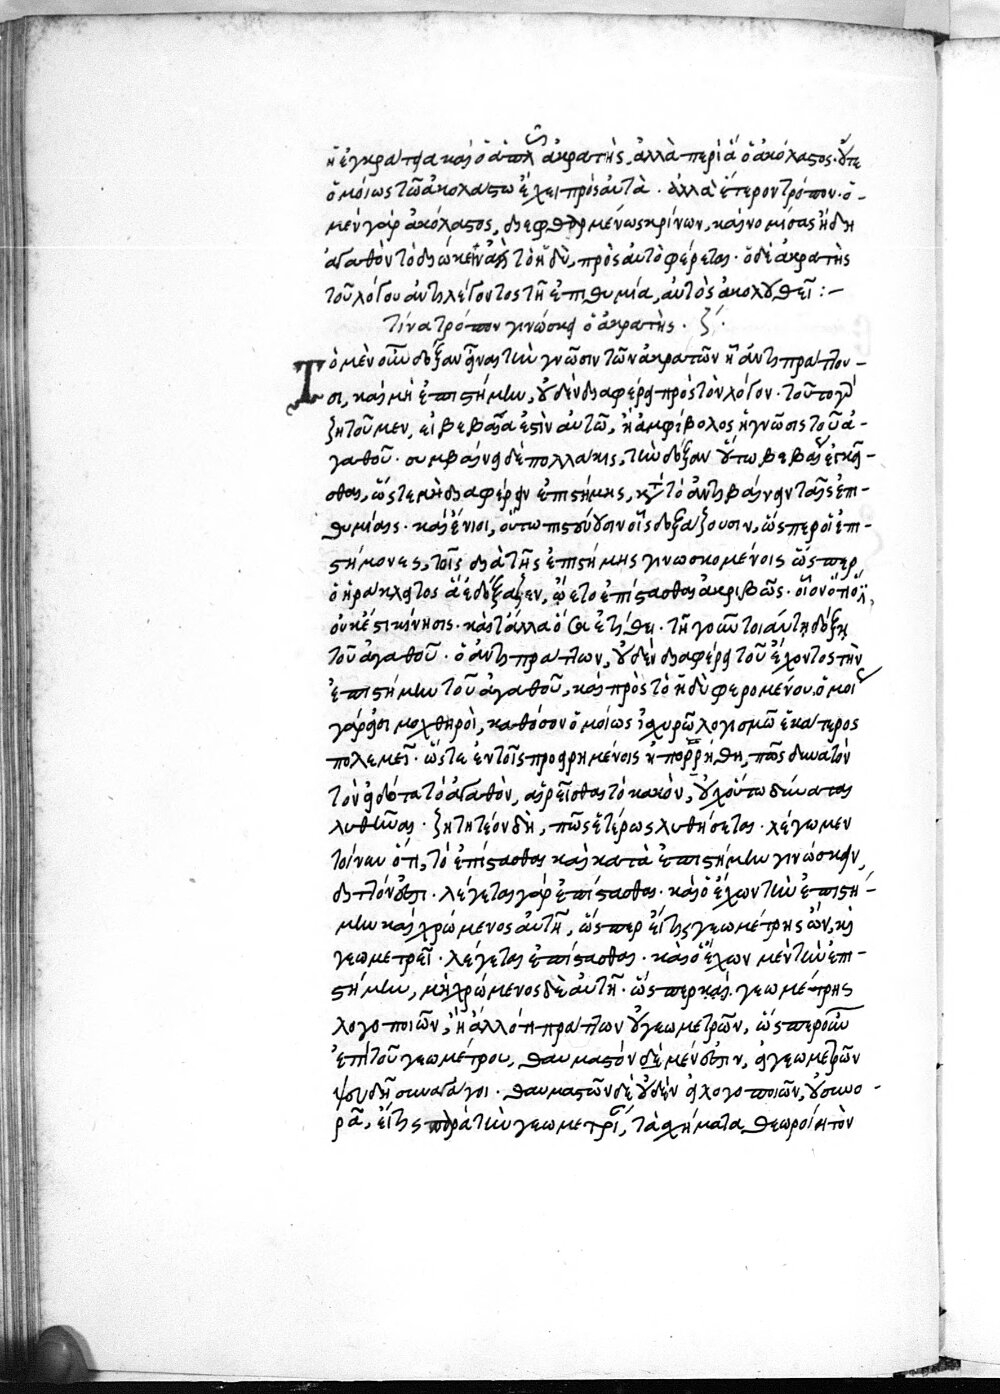 ἢ ἐγκράτεια καὶ ὁ ἁπλῶς ἀκρατής, ἀλλὰ περὶ ἃ ὁ ἀκόλαστος. οὔτε
ὁμοίως τῷ ἀκολάστῳ ἔχει πρὸς αὐτὰ. ἀλλὰ ἕτερον τρόπον. ὁ
μὲν γὰρ ἀκόλαστος, διεφθαρμένως κρίνων, καὶ νομίσας ἤδη
ἀγαθὸν τὸ διώκειν ἀεὶ τὸ ἡδὺ, πρὸς αὐτὸ φέρεται. ὁ δὲ ἀκρατὴς
τοῦ λόγου ἀντιλέγοντος τῇ ἐπιθυμίᾳ, αὐτὸς ἀκολουθεῖ :-
τίνα τρόπον γινώσκει ὁ ἀκρατής. ζ.
Τὸ μὲν οὖν δόξαν εἶναι τὴν γνῶσιν τῶν ἀκρατῶν ᾗ ἀντιπράττου-
σι, καὶ μὴ ἐπιστήμην, οὐδὲν διαφέρει πρὸς τὸν λόγον. τοῦτο γὰρ
ζητοῦμεν, εἰ βεβαία ἐστὶν αὐτῷ, ἢ ἀμφίβολος ἡ γνῶσις τοῦ ἀ-
γαθοῦ. συμβαίνει δὲ πολλάκις, τὴν δόξαν οὕτω βεβαίως κεῖ-
σθαι, ὥστε μὴ διαφέρειν ἐπιστήμης, κατὰ τὸ ἀντιβαίνειν ταῖς ἐπι-
θυμίαις. καὶ ἔνιοι, οὕτω πιστεύουσιν οἷς δοξάζουσιν, ὥσπερ οἱ ἐπι-
στήμονες, τοῖς διὰ τῆς ἐπιστήμης γινωσκομένοις ὥσπερ
ὁ ἡράκλειτος ἃ ἐδόξαζεν, ᾤετο ἐπίστασθαι ἀκριβῶς. οἷον ὅτι
οὐκ ἔστι κίνησις. καὶ τἄλλα ὅσα ἐτίθει. τῇ γοῦν τοιαύτῃ δόξῃ
τοῦ ἀγαθοῦ. ὁ ἀντιπράττων, οὐδὲν διαφέρει τοῦ ἔχοντος τὴν
ἐπιστήμην τοῦ ἀγαθοῦ, καὶ πρὸς τὸ ἡδὺ φερομένου. ὁμοίως
γάρ εἰσι μοχθηροὶ, καθόσον ὁμοίως ἰσχυρῷ λογισμῷ ἑκάτερος
πολεμεῖ. ὥστε ἐν τοῖς προειρημένοις ἠπορήθη, πῶς δυνατὸν
τὸν εἰδότα τὸ ἀγαθὸν, αἱρεῖσθαι τὸ κακόν, οὐχ οὕτω δύναται
λυθῆναι. ζητητέον δὴ, πῶς ἑτέρως λυθήσεται. λέγωμεν
τοίνυν ὅτι, τὸ ἐπίστασθαι καὶ κατὰ ἐπιστήμην γινώσκειν,
διττόν ἐστι. λέγεται γὰρ ἐπίστασθαι. καὶ ὁ ἔχων τὴν ἐπιστή-
μην καὶ χρώμενος αὐτῇ, ὥσπερ εἴ τις γεωμέτρης ὢν, καὶ
γεωμετρεῖ. λέγεται ἐπίστασθαι. καὶ ὁ ἔχων μὲν τὴν ἐπι-
στήμην, μὴ χρώμενος δὲ αὐτῇ. ὥσπερ καὶ γεωμέτρης
λογοποιῶν, ἢ ἄλλό τι πράττων οὐ γεωμετρῶν, ὥσπερ οὖν
ἐπὶ τοῦ γεωμέτρου, θαυμαστὸν δὲ μέν ἐστιν, εἰ γεωμετρῶν
ψευδῆ συνάγοι. θαυμαστῶν δὲ οὐδὲν εἰ λογοποιῶν, οὐ συνο-
ρᾷ, εἴ τις παρὰ τὴν γεωμετρίαν, τὰ σχήματα θεωροίη τὸν